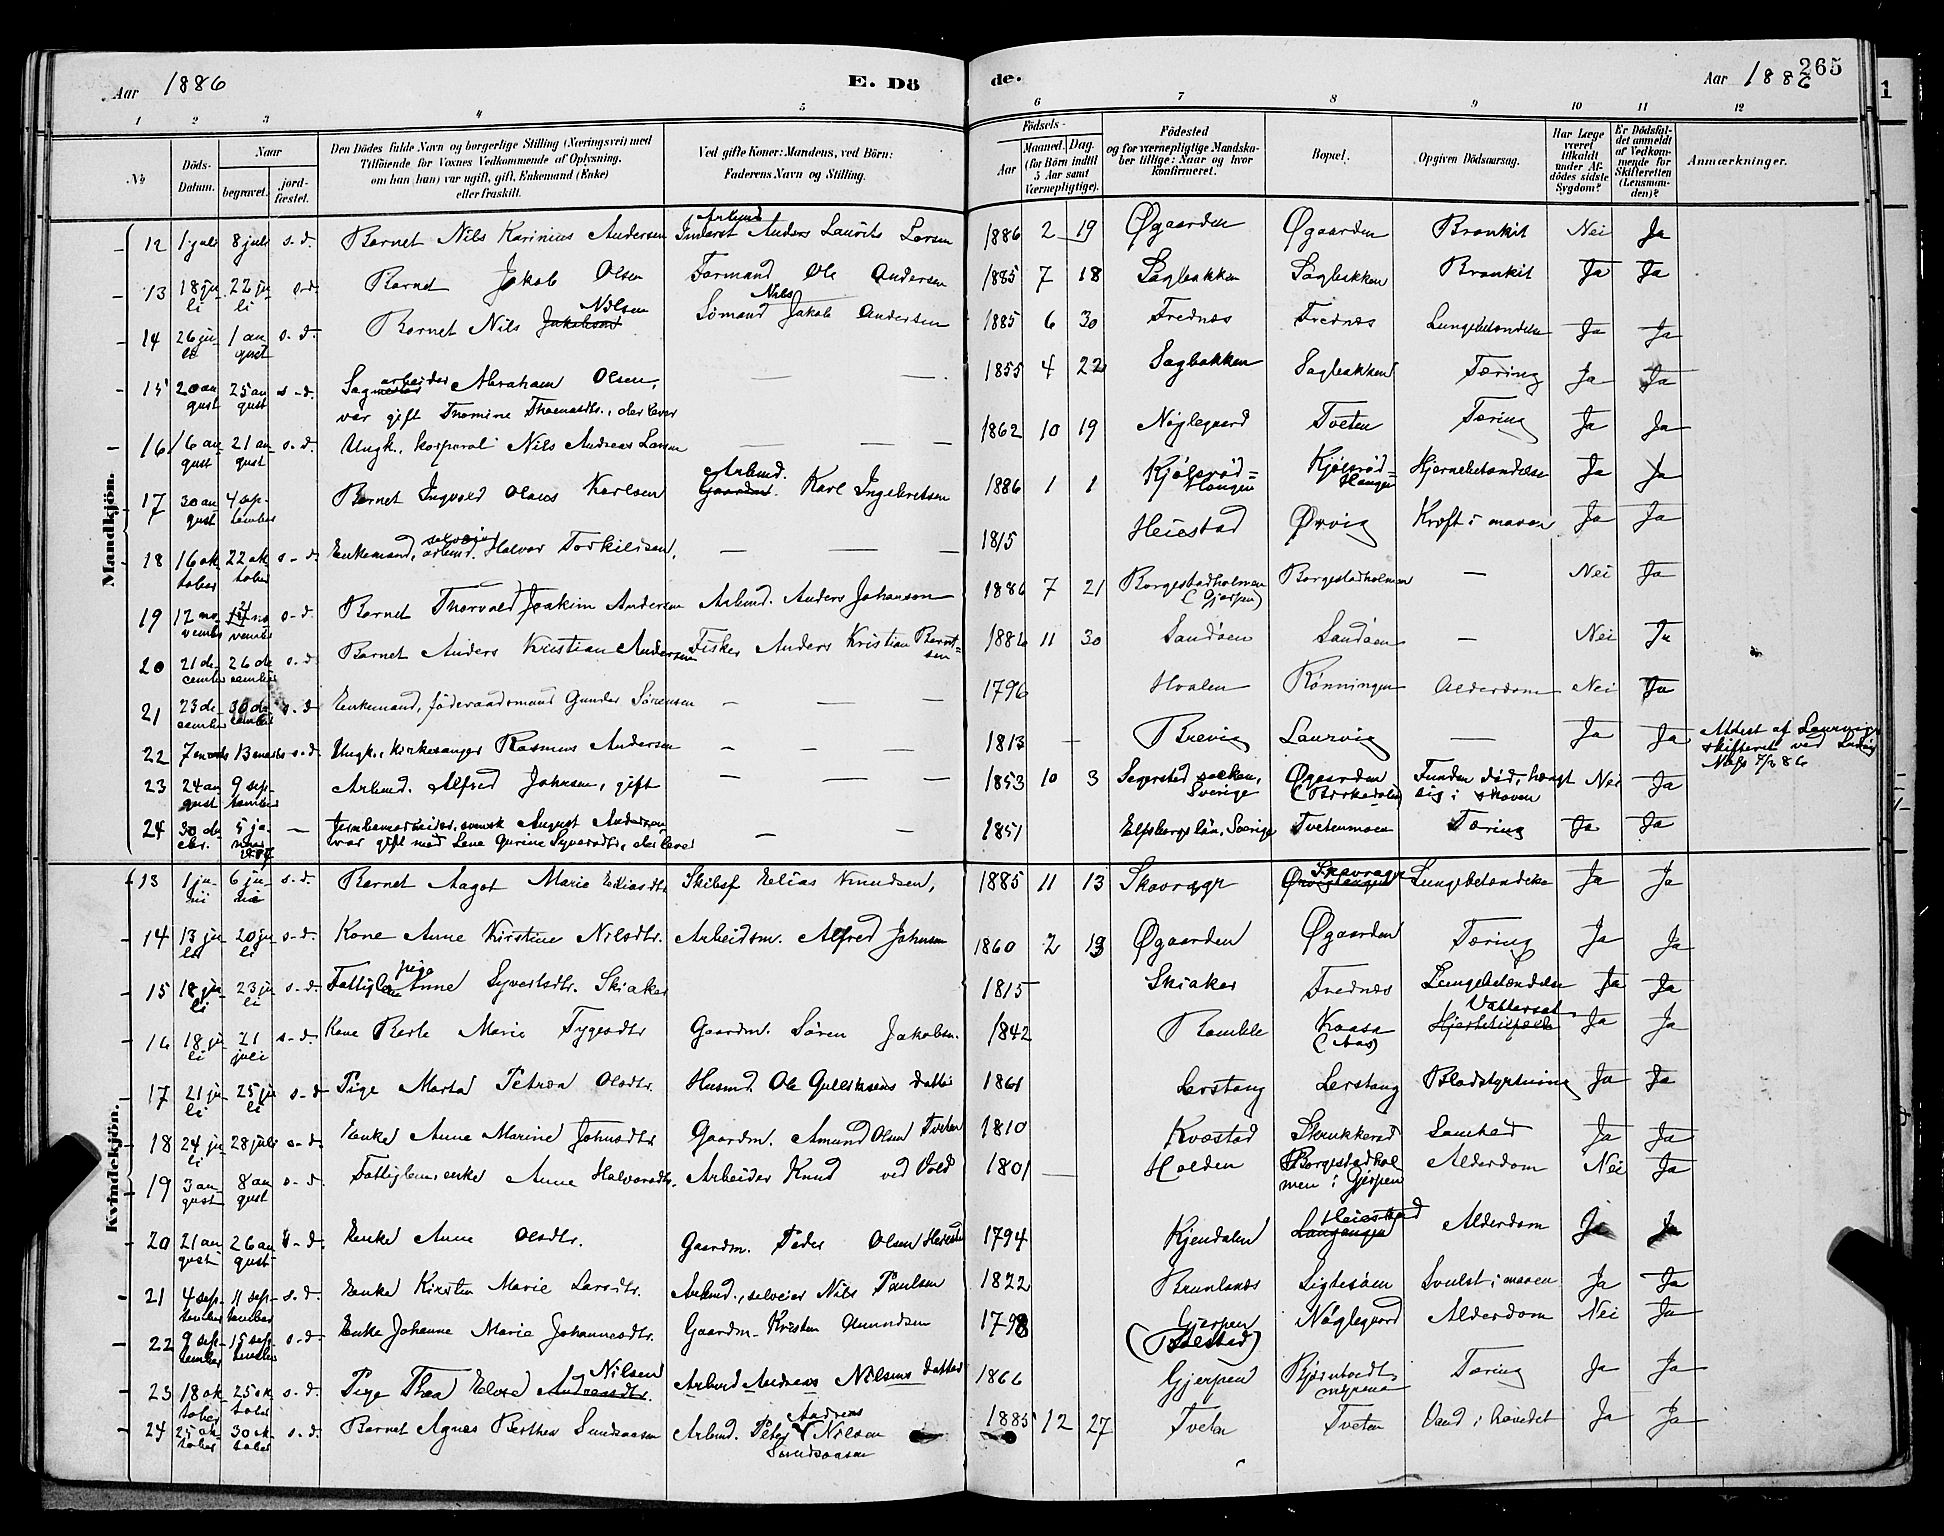 Aar 1886 E. Dö
de. Aar 1886 265
1 2 3 4 5 6 7 8 9 10 11 12
No
Döds-Datum.
Naar
begravet. jordfæstet.
Den Dödes fulde Navn og borgerlige Stilling (Næringsvei) med
Tilföiende for Voxnes Vedkommende af Oplysning,
om han (hun) var ugift, gift, Enkemand (Enke)
eller fraskilt.
Ved gifte Koner: Mandens, ved Börn:
Faderens Navn og Stilling.
Födsels-
Aar Maaned. Dag.
(for Börn indtil
5 Aar samt
Værnepligtige).
Födested
og for værnepligtige Mandska-
ber tillige: Naar og hvor
konfirmeret.
Bopæl.
Opgiven Dödsaarsag.
Har Læge
været
tilkaldt
under Af-
dödes sidste
Sygdom?
Er Dödsfal-
det anmeldt
af Vedkom-
mende for
Skifteretten
(Lensman-
den)?
Anmærkninger.
Mandkjön.
12 1 juli 8 juli s.d. Barnet Nils Karinius Andersen Arbmd Anders Laurits Larsen 1886 2 19 Øgaarden Øgaarden Bronkit Nei Ja
13 18 juli 22 juli s.d. Barnet Jakob Olsen Formand Ole Andersen 1885 7 18 Sagbakken Sagbakken Bronkit Ja Ja
14 26 juli 1 august s.d. Barnet Nils Jakobsen Nilsen Sömand Nils Jakob Andersen 1885 6 30 Frednæs Frednæs Lungebetændelse Ja Ja
15 20 august 25 august s.d. Sagmester arbeider Abraham Olsen, — — 1855 4 22 Sagbakken Sagbakken Tæring Ja Ja
var gift Thomine Thomasdtr., der lever
16 16 august 21 august s.d. Ungk., korporal Nils Andreas Larsen — — — 1862 10 19 Nøglegaard Tveten Tæring Ja Ja
17 30 august 4 september Barnet Ingvald Olaus Karlsen Gaardm. Arbmd. Karl Ingebretsen 1886 1 1 Kjölsröd-Haugen Kjölsröd-Haugen Hjernebetændelse Ja Ja
18 16 oktober 22 oktober s.d. Enkemand, selveier arbmd. Halvor Torkildsen, — — — 1815 Heiestad Ørvig Kræft i maven Ja Ja
19 12 november 21 november s.d. Barnet Thorvald Joakim Andersen Arbmd. Anders Johansen 1886 7 21 Borgestadholmen (Gjerpen) Borgestadholmen — Nei Ja
20 21 december 26 december s.d. Barnet Anders Kristian Andersen Fisker Anders Kristian Berntsen 1886 11 30 Sandöen Sandöen — Nei Ja
21 23 december 30 december s.d. Enkemand, föderaadsmand Gunder Sörensen — — — 1796 Hvalen Rønningen Alderdom Nei Ja
22 7 marts 13 marts s.d. Ungk., kirkesanger Rasmus Andersen — — — 1813 — Brevig Laurvig — Ja Ja Attest af Laurvigs
skifteret
23 24 august 9 september Arbmd. Alfred Johnsen, gift — — — 1853 10 3 Segerstad socken, Sverige Øgaarden (Birkedalen) Funden död, hængt sig i skoven Nei Ja
24 30 decbr. 5 januar 1887 — Jernbanearbeider, svensk August Andersen — — 1851 Elfsborgs län, Sverige Tvetenmoen Tæring Ja Ja
var gift med Lena Gurine Syversdtr., der lever
Kvindekjön.
13 1 juni 6 juni s.d. Barnet Aagot Marie Eliasdtr Skibsf Elias Knudsen, 1885 11 13 Skavrager Ørvigtangen Skavrager Lungebetændelse Ja Ja
14 13 juli 20 juli s.d. Kone Anne Kirstine Nilsdtr. Arbeidsm. Alfred Johnsen 1860 2 13 Øgaarden Øgaarden Tæring Ja Ja
15 18 juli 23 juli s.d. Fattiglem pige Anne Syvertsdtr. Skiaker 1815 Skiaker Frednæs Lungebetændelse Ja Ja
16 18 juli 21 juli s.d. Kone Berte Marie Tygesdtr Gaardm. Sören Jakobsen. 1842 Bamble Kaasa (Aas) Hjertetilfælde Vattersot Ja Ja
17 21 juli 25 juli s.d Pige Marta Petrea Olsdtr. Husmd. Ole Gulliksens datter 1861 Lerstang Lerstang Blodstyrtning Ja Ja
18 24 juli 28 juli s.d. Enke Anne Marine Johnsdtr Gaardm. Amund Olsen Tveten 1810 Kvæstad Skrukkerød Ja Ja
19 3 august 8 august s.d. Fattiglem, enke Anne Halvorsdtr. Arbeider Knud ved Vold 1801 — Holden Borgestadholmen i Gjerpen Alderdom Nei Ja
20 21 august 26 august s.d. Enke Anne Olsdtr. Gaardm. Peder Olsen Heiestad 1794 Kjendalen Langangen Heiestad Alderdom Ja Ja
21 4 september 11 september s.d. Enke Kirstin Marie Larsdtr. Arbmd., selveier Nils Paulsen 1822 Brunlanæs Ligtesöen Svulst i maven Ja Ja
22 9 september 15 september s.d. Enke Johanne Marie Johannesdtr. Gaardm. Kristen Amundsen 1798 Gjerpen (Bölestad) Nøglegaard Alderdom Nei Ja
23 18 oktober 25 oktober s.d. Pige Thea Elvse Andreasdtr. Nilsen Arbmd Andreas Nilsens datter 1866 Gjerpen Bjørntvedtmyrene Tæring Ja Ja
24 25 oktober 30 oktober s.d. Barnet Agnes Berthea Sundsaasen Arbmd. Peter Andreas Nilsen Sundsaasen 1885 12 27 Tveten Tveten Vand i hovedet Ja Ja